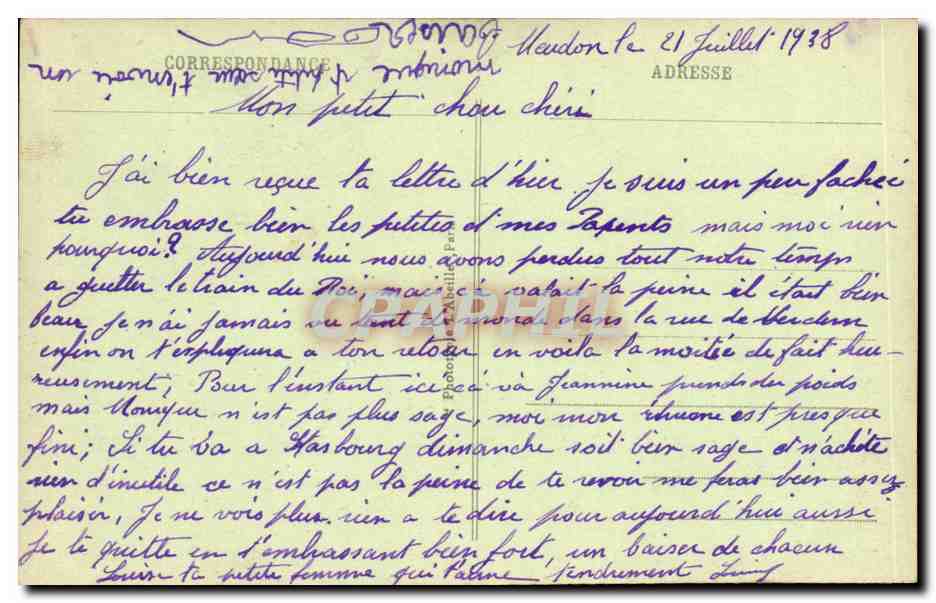 Meudon le 21 Juillet 1938
CORRESPONDANCE
ADRESSE
Mon petit chou chéri
J'ai bien reçue ta lettre d'hier. Je suis un peu fachée
tu embrasse bien les petites et mes Parents mais moi rien
pourquoi? Aujourd'hui nous avons perdus tout notre temps
a guetter le train du Roi, mais ça valait la peine il était bien
beau, Je n'ai jamais vu tant de monde dans la rue de Verdun
enfin on t'expliquera a ton retour en voila la moitée de fait heu-
reusement, Pour l'instant ici ça va Jeannine prends du poids
mais Monique n'est pas plus sage, moi mon rhume est presque
fini; Si tu va a Strasbourg dimanche soit bien sage et n'achète
rien d'inutile ce n'est pas la peine de te revoir me feras bien assez
plaisir, Je ne vois plus rien a te dire pour aujourd'hui aussi
je te quitte en t'embrassant bien fort, un baiser de chacun
ta petite femme qui t'aime tendrement
Monique et petite sœur t'envoie un
baiser
Phototypie L'Abeille, Paris
CPAPHIL